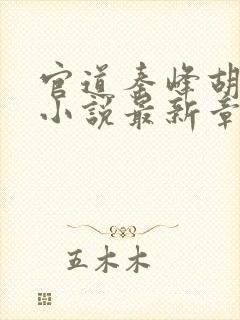 官道秦峰胡
小说最新章
五木木